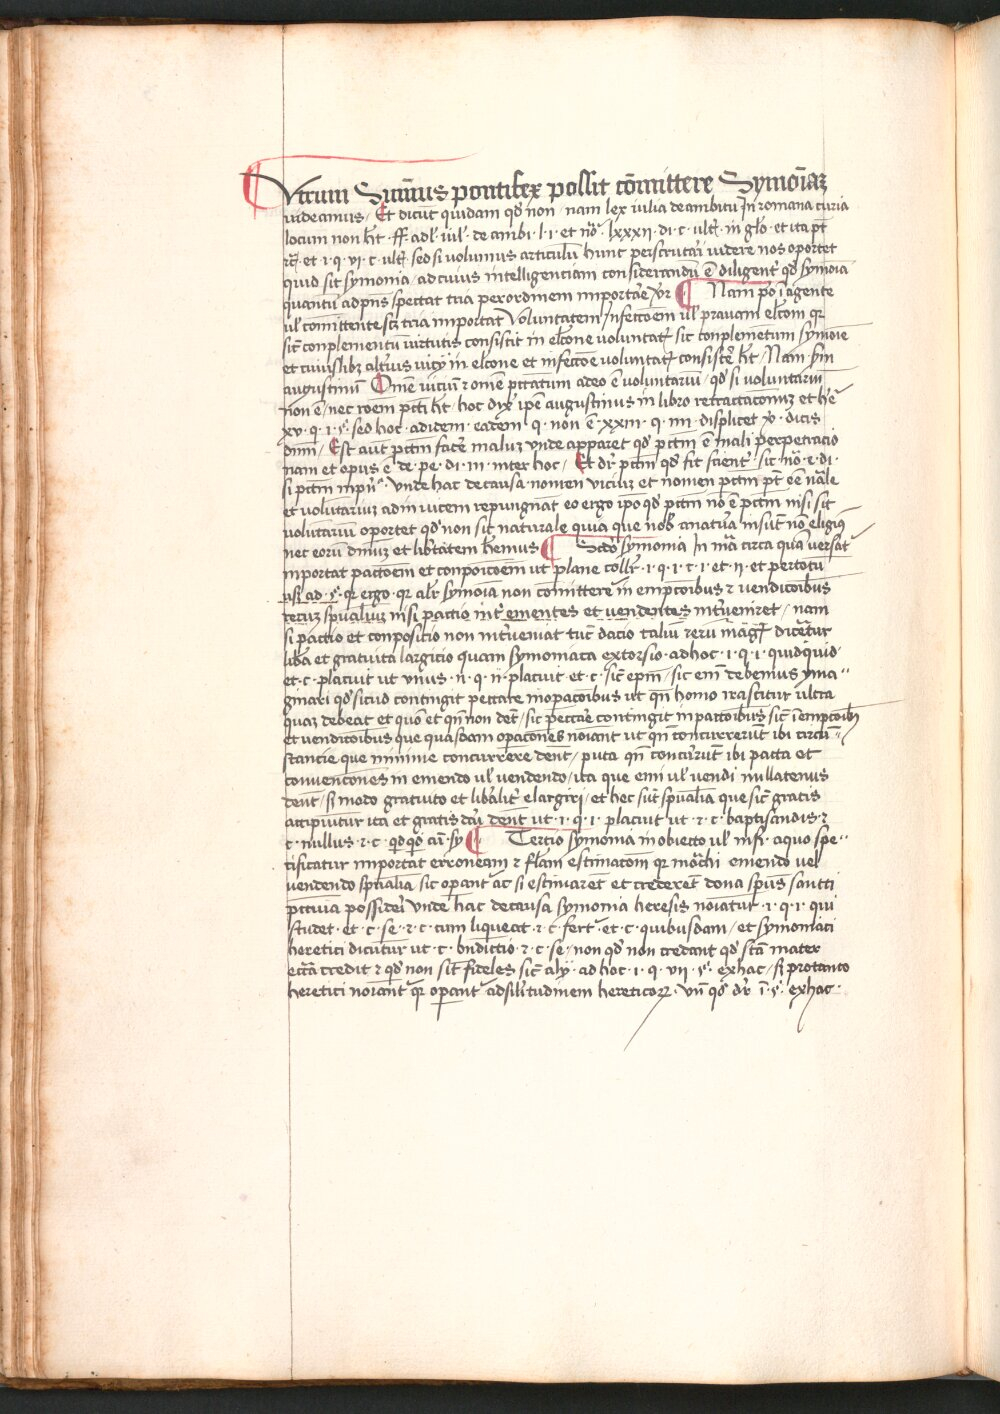 Vtrum Sum̄us pontifex possit cōmittere Symoīaꝫ
videamus / Et dicūt quidam qď non / nam lex iulia de ambitu In romana curia
locum non hēt · ff · ad l · iul · de ambi · l · i · et nō · lxxxii · di · c · ult · in glō · et ita pt̄
et · i · q · vi · c · ult · sed si volumus articulū hunc perscrutari videre nos oportet
quid sit symonia / ad cuius intelligenciam considerandū ē diligent̄ qď symoīa
quantū ad pn̄s spectat tria per ordinem importare Nam pō ī agente
ul̄ comittente scȝ tria importat Voluntatem Infectōem ul̄ prauam elcōm qꝛ
sic̄ conplementū virtutis consistit in elcōne voluntatꝭ sic conplemētum symōie
et cuiuslibꝫ alt̄ius vicy in elcōne et infectōe voluntatꝭ consistē hēt / Nam scd̄m
augustinū Om̄e viciū ⁊ om̄e pctātum adeo ē voluntariū / qď si voluntariū
non ē / nec rōem pcti hēt · hoc dix̄ ip̄e augustinus in libro retractacōnuꝫ et hē
xv · q · i · § · sed hoc · ad idem · eadem · q · non ē · xxiii · q · iiii · displicet
Est aūt pctm̄ facē maluꝫ vnde apparet qď pctm̄ ē mali perpetracio
nam et opus ē de · pe · di · iii · inter hoc / Et dr̄ pctm̄ qď fit scient̄ · sic nō · e · di ·
si pctm̄ · vnde hac de causa nomen viciuꝫ et nomen pctm̄ pt̄ eē nāle
et voluntariuꝫ ad inuicem repungnāt eo ergo ipo qď pctm̄ nō ē pctm̄ nisi sit
volūtariū oportet qď non sit naturale quia que nob̄ a natur̄a insūt nō eligim9
nec eorū dn̄iuꝫ et lib̄tatem hēmus Scd̄o symonia In mā circa quā versat̄
inportat pactōem et conpoīcōem ut plane · i · q · i · c · i · et · ii · et per totū
usqꝫ ad · § · qꝛ ergo · qꝛ alr̄ symoīan non comittere in emptcōibus ⁊ vendicōibus
reruꝫ spūaliuꝫ nisi pactio int̄ ementes et vendentes int̄ueniret / nam
si pactio et conpositio non int̄ueniat tūc dacio taliū rerū maḡꝭ dicēētur
lib̄a et gratuita largicio quam symoniaca extorsio · ad hoc · i · q · i · quidquid ·
et · c · placuit ut vnus · ii · q · ii · placuit et · c · sic̄ ep̄m / sic eni̅ debemus yma〃
ginari qď sicud contingit peccare in opacōibus ut qn̄ homo irascitur ultra
quaꝫ debeat et quō et qn̄ non det̄ / sic peccāe contingit in pactōibus sic̄ ī emptōibꝫ
et vendicōibus que quasdam opacōnes noīant ut qn̄ concurrerūt ibi circū〃
stancie que minime concurrere dent̄ / puta qn̄ concur̄ūt ibi pacta et
convencōnes in emendo ul̄ vendendo / ita que emi ul̄ vendi nullatenus
dent̄ / sȝ modo gratuito et lib̄alit̄ elargiri / et hec sūt spūalia que sic̄ gratis
accipiūtur ita et gratis dari dent̄ ut · i · q · i · placuit ut · ⁊ · c · baptisandis · ⁊
c · nullus · ⁊ · c · qdqd · cū · sy Tertio symonia in obiecto ul̄ mȓ · a quo spe〃
cificatur importat erroneam ⁊ flām estimacōm qꝛ emendo vel
vendendo spūalia sic opant̄ ac si estimarēt et crederent dona sp̄us sancti
pccūia possideri vnde hac de causa symonia heresis noīatur · i · q · i · qui
studet · et · c · se · ⁊ · c · cum liqueat · ⁊ · c · fert̄ · et · c · quibusdam / et symoniaci
heretici dicūtur ut · c · bn̄dictio · ⁊ · c · se · non qď non credant qď scā mater
ecc̄ā credit ⁊ qď non sit̄ fideles sic̄ aly · ad hoc · i · q · vii · § · ex hac / sȝ pro tanto
heretici noīant̄ qꝛ opant̄ ad silitudinem hereticorꝝ · vn̄ qď dr̄ ī · § · ex hac ·